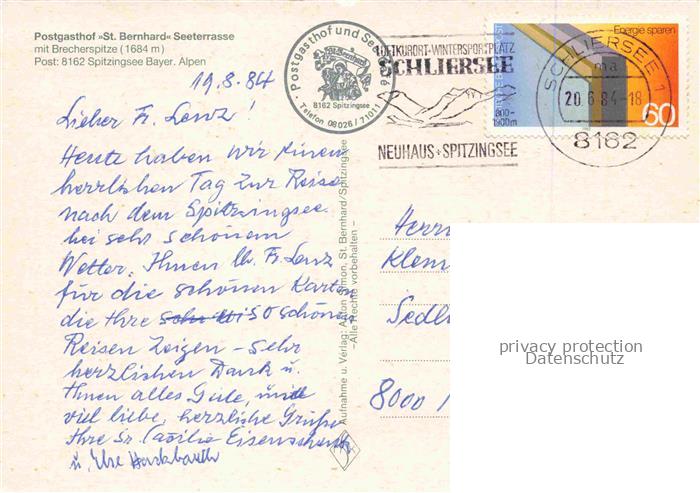 Postgasthof »St. Bernhard« Seeterrasse
mit Brecherspitze (1684 m)
Post: 8162 Spitzingsee Bayer. Alpen
19.8.84
Lieber Fr. Lenz!
Heute haben wir einen
herrlichen Tag zur Reise
nach dem Spitzingsee.
bei sehr schönem
Wetter. Ihnen lb. Fr. Lenz
für die schönen Karten
die Ihre so schönen
Reisen zeigen – sehr
herzlichen Dank u.
Ihnen alles Gute, und
viel liebe, herzliche Grüße
Ihre Sr. Cäcilia
u. Else
Postgasthof und See
St. Bernhard
8162 Spitzingsee
Telefon 08026/71011
LUFTKURORT-WINTERSPORTPLATZ
SCHLIERSEE
800-
1900m
NEUHAUS + SPITZINGSEE
SCHLIERSEE 1
ma
20.6.84-18
8162
Energie sparen
60
Aufnahme u. Verlag: Anton Simon, St. Bernhard/Spitzingsee
– Alle Rechte vorbehalten –
Herrn
Klem
Sedl
8000
privacy protection
Datenschutz